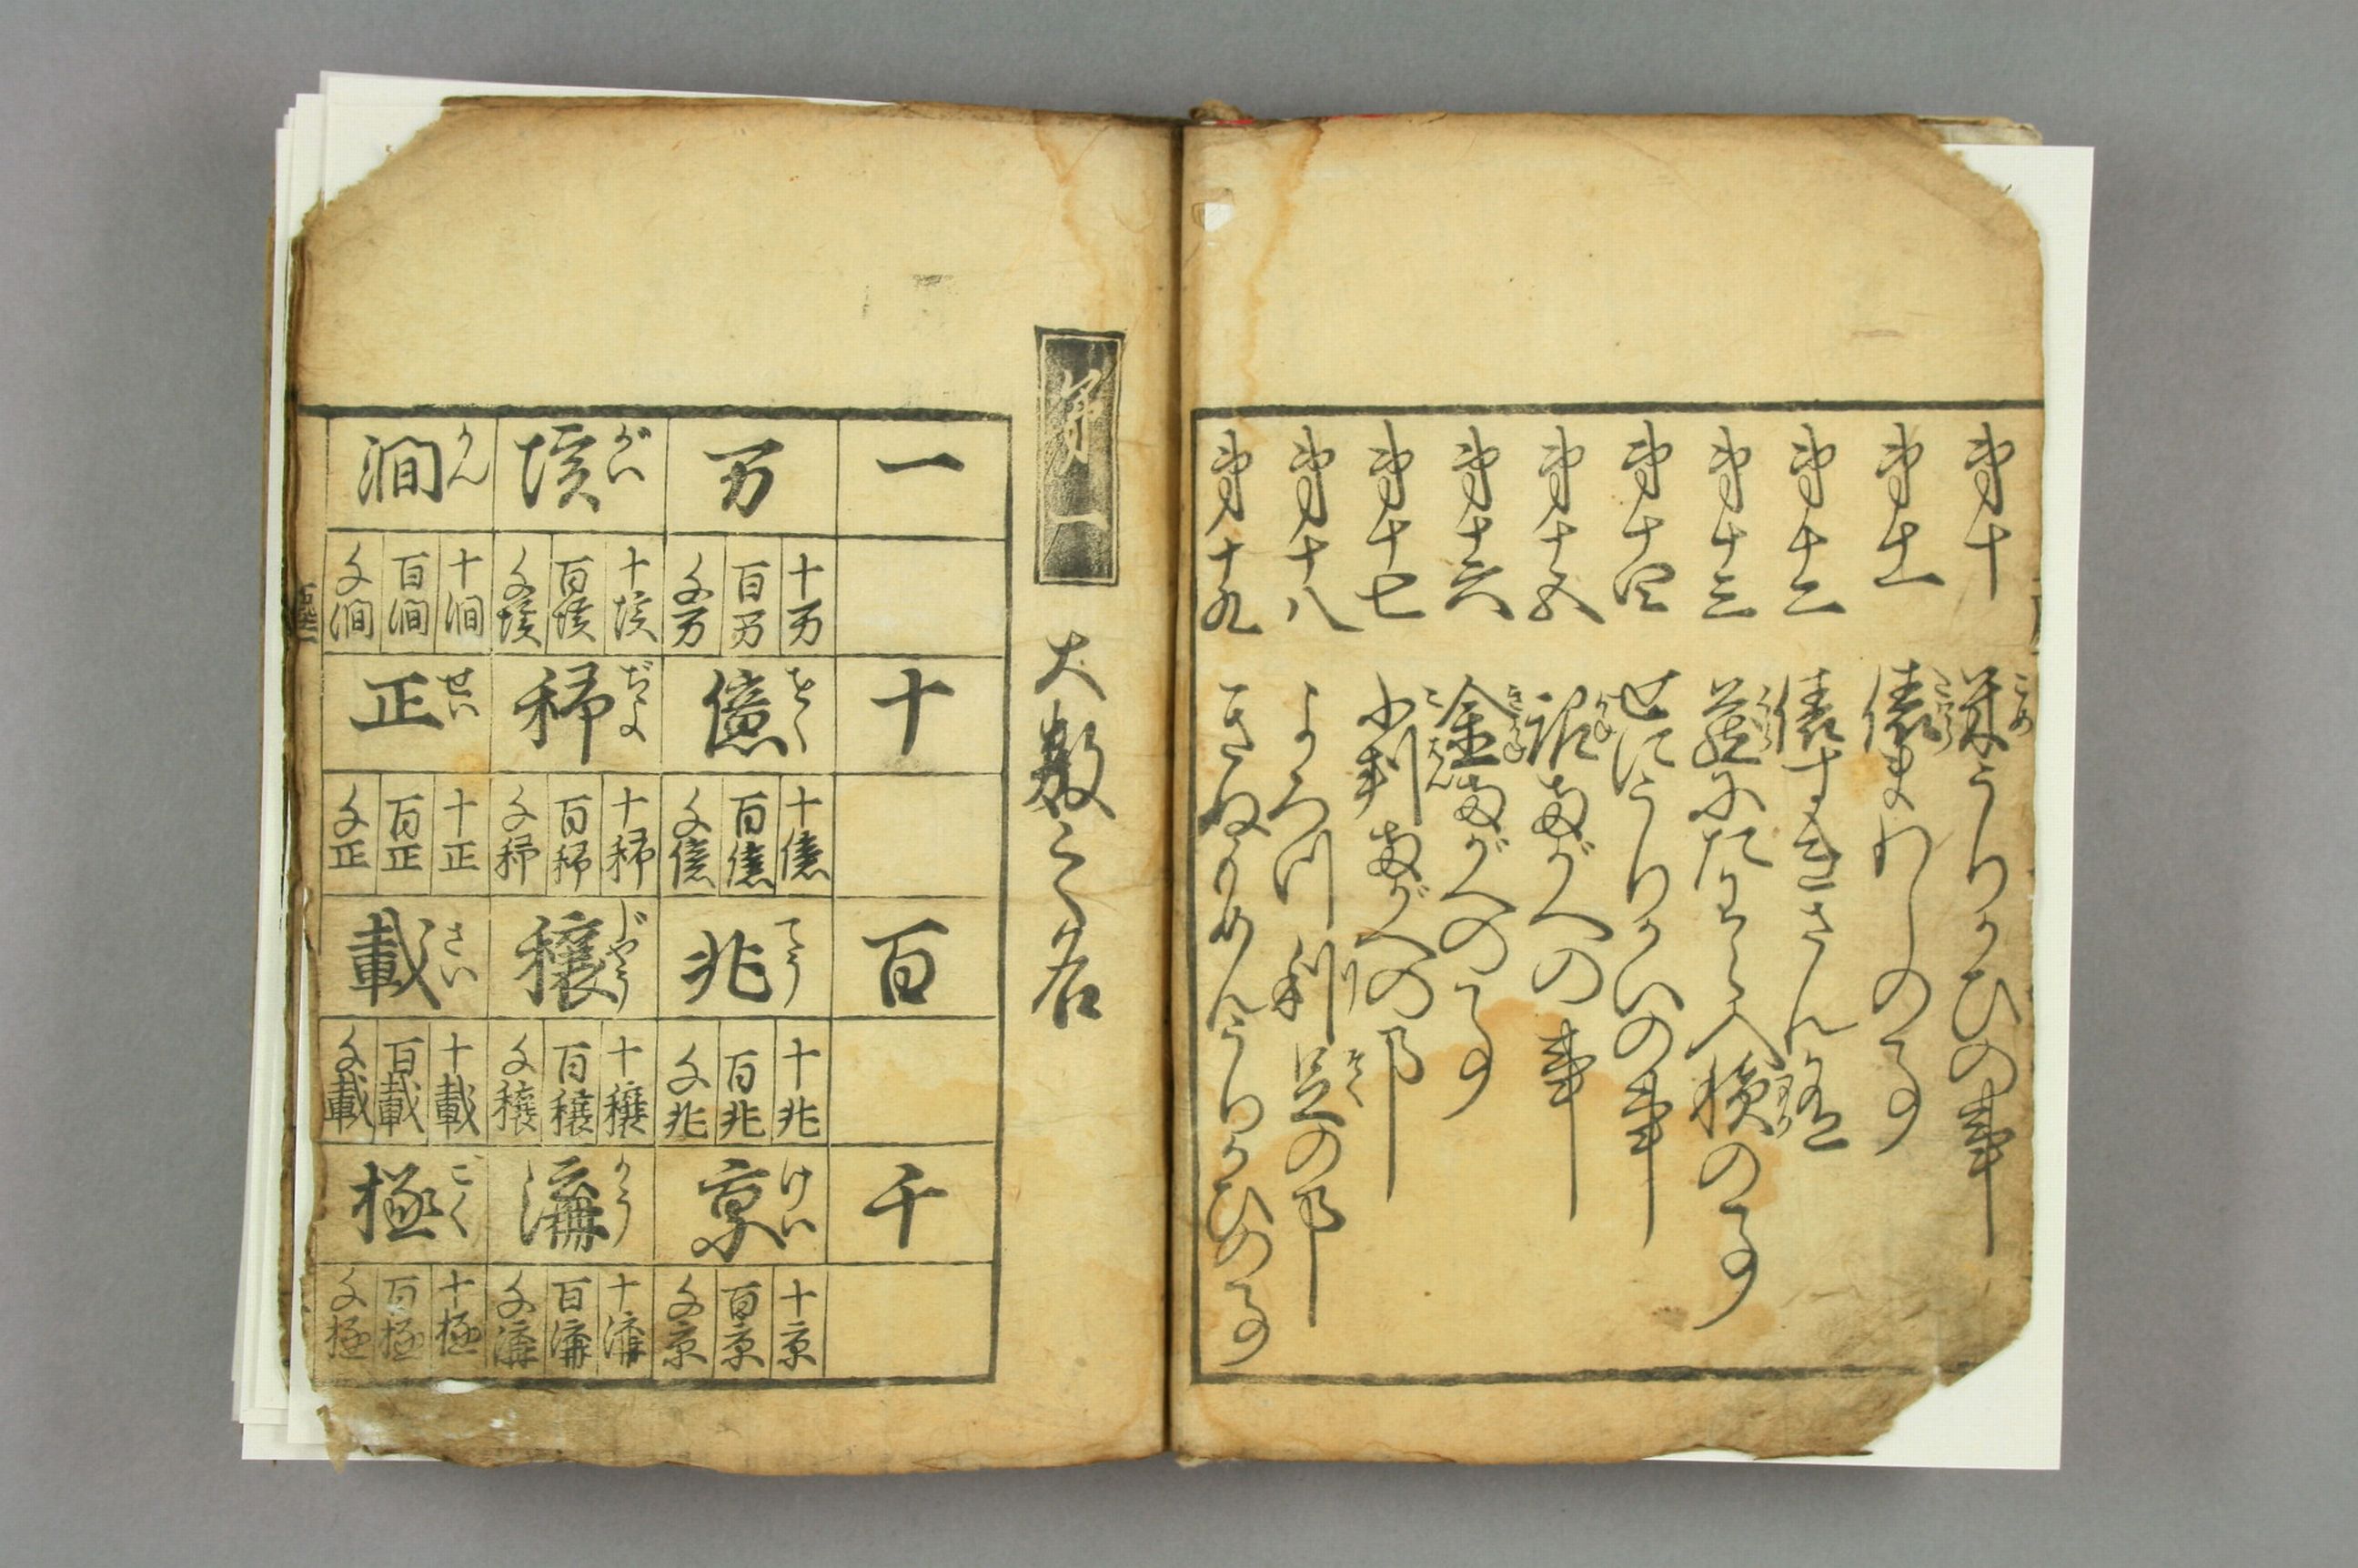 第十 米うりかひの事
第十一 俵まわしの事
第十二 俵すぎさん
第十三 蔵にたわら入積の事
第十四 せにうりかいの事
第十五 銀両がへの事
第十六 金両がへの事
第十七 小判両がへの事
第十八 よろづ利足の事
第十九 きぬもめんうりかひの事
第一 大数之名
一
十
百
千
万 十万 百万 千万
億 をく 十億 百億 千億
兆 てう 十兆 百兆 千兆
京 けい 十京 百京 千京
垓 がい 十垓 百垓 千垓
秭 ぢよ 十秭 百秭 千秭
穣 じやう 十穣 百穣 千穣
溝 かう 十溝 百溝 千溝
澗 かん 十澗 百澗 千澗
正 せい 十正 百正 千正
載 さい 十載 百載 千載
極 ごく 十極 百極 千極